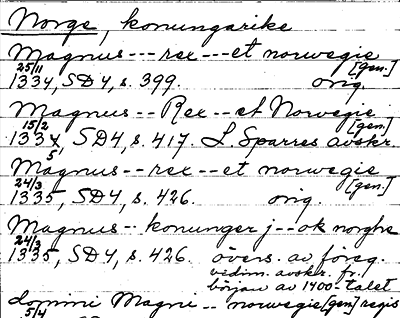 Norge, konungarike
Magnus --- rex --- et norwegie
25/11 [gen.]
1334, SD4, s. 399. orig.
Magnus -- Rex -- et Norwegie
15/2 [gen.]
1334, SD4, s. 417. L. Sparres avskr.
5
Magnus -- rex -- et norwegie
24/3 [gen.]
1335, SD4, s. 426. orig.
Magnus -- konunger j -- ok norghe
24/3
1335, SD4, s. 426. övers. av föreg.
vedim. avskr. fr.
början av 1400-talet
domini Magni -- norwegie [gen] regis
5/4